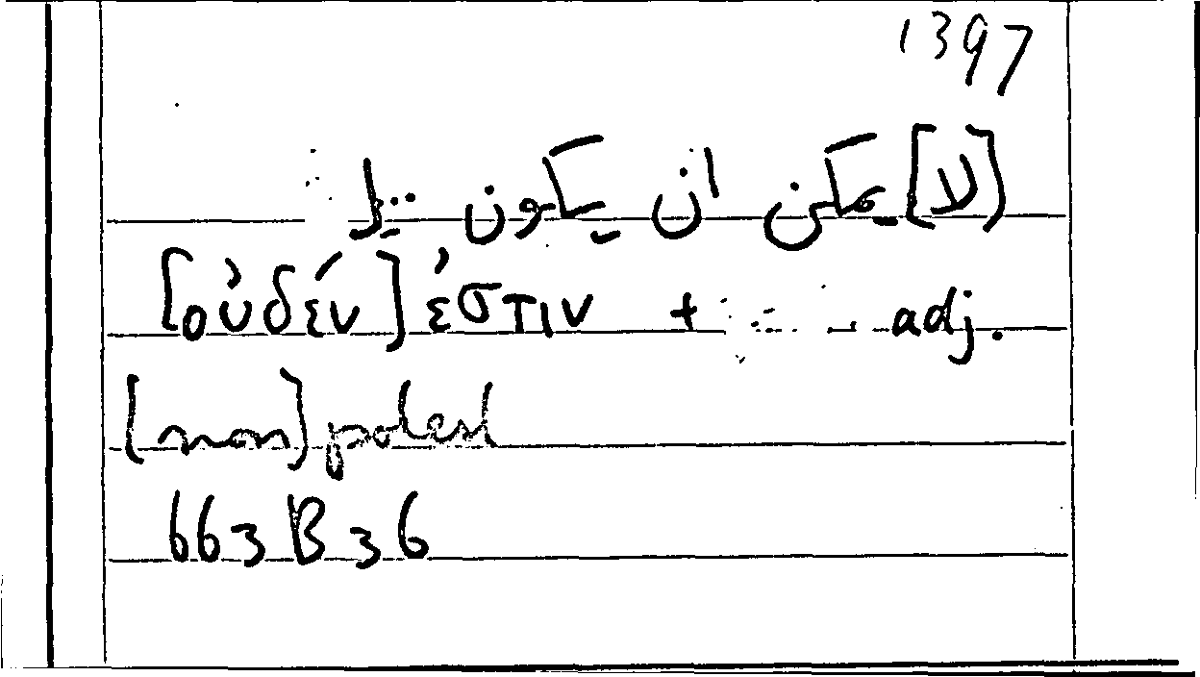 1397
[لا] يمكن ان يكون
[οὐδέν] ἐστιν + adj.
[non] potest
663 B 36